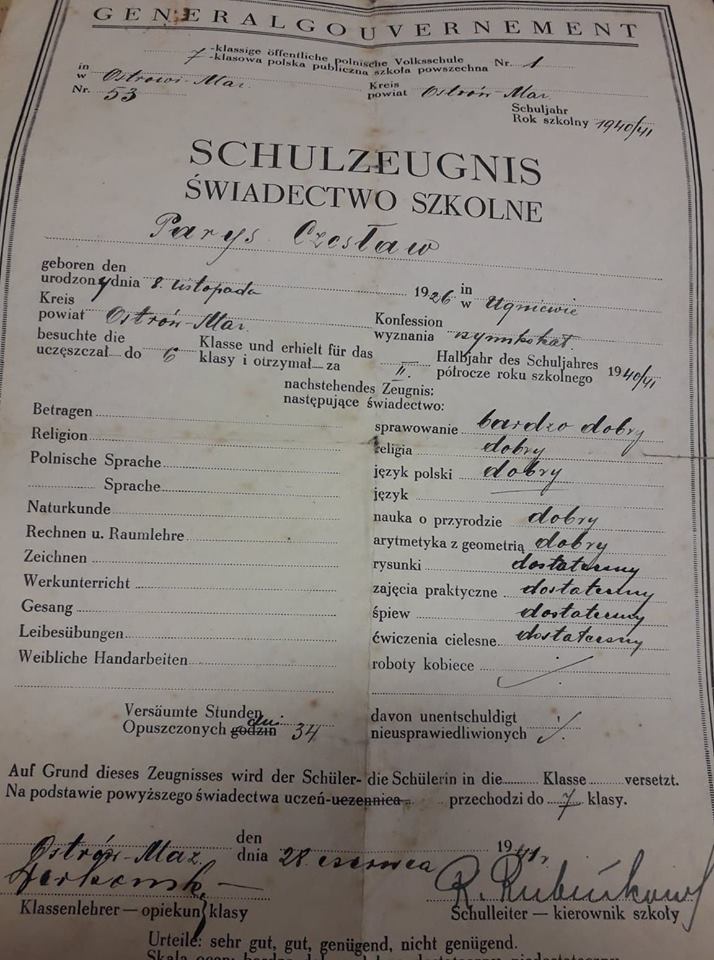 GENERALGOUVERNEMENT
7 -klassige öffentliche polnische Volksschule
-klasowa polska publiczna szkoła powszechna Nr. 1
in
w Ostrowi-Maz. Kreis
powiat Ostrów-Maz.
Nr. 53
Schuljahr
Rok szkolny 1940/41
SCHULZEUGNIS
ŚWIADECTWO SZKOLNE
Parys Czesław
geboren den
urodzony dnia 8. listopada 1926 in
w Ugniewie
Kreis
powiat Ostrów-Maz. Konfession
wyznania rzymkokat
besuchte die Klasse und erhielt für das Halbjahr des Schuljahres
uczęszczał do 6 klasy i otrzymał za II. półrocze roku szkolnego 1940/41
nachstehendes Zeugnis:
następujące świadectwo:
Betragen sprawowanie bardzo dobry
Religion religia dobry
Polnische Sprache język polski dobry
Sprache język —
Naturkunde nauka o przyrodzie dobry
Rechnen u. Raumlehre arytmetyka z geometrią dobry
Zeichnen rysunki dostateczny
Werkunterricht zajęcia praktyczne dostateczny
Gesang śpiew dostateczny
Leibesübungen ćwiczenia cielesne dostateczny
Weibliche Handarbeiten roboty kobiece
Versäumte Stunden davon unentschuldigt
Opuszczonych godzin dni 34 nieusprawiedliwionych
Auf Grund dieses Zeugnisses wird der Schüler- die Schülerin in die Klasse versetzt.
Na podstawie powyższego świadectwa uczeń-uczennica przechodzi do 7 klasy.
Ostrów-Maz. den
dnia 28 czerwca 1941 r
Klassenlehrer — opiekun klasy Schulleiter — kierownik szkoły
Urteile: sehr gut, gut, genügend, nicht genügend.
Skala ocen: bardzo dobry, dobry, dostateczny, niedostateczny.